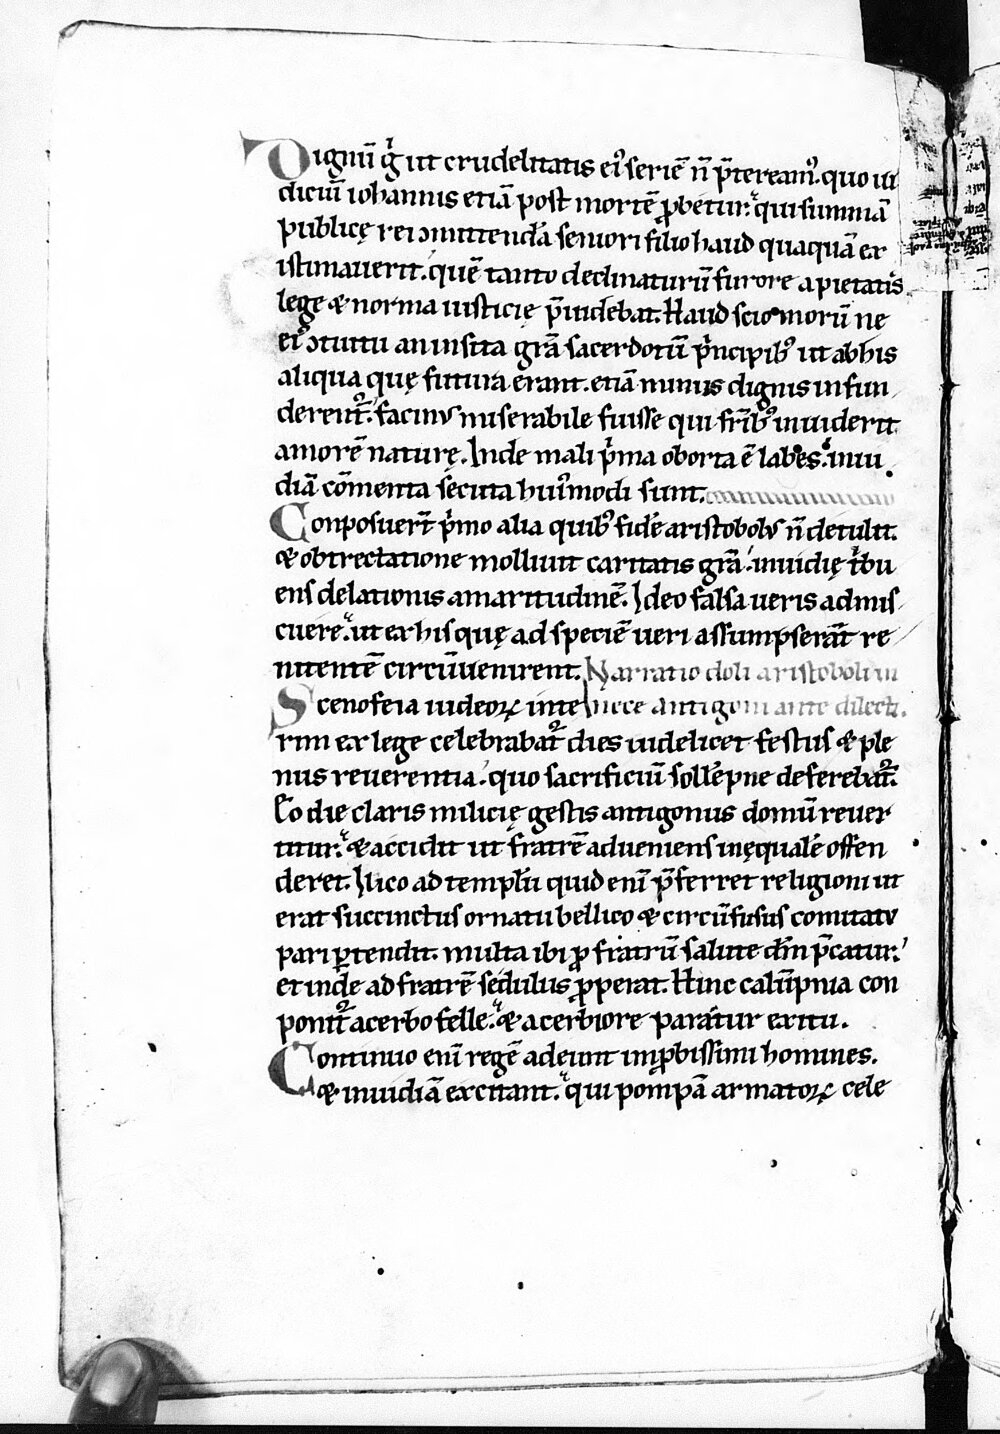 Dignū g̊ ut crudelitatis ei᷒ seriē n̄ p̄tereamᷣ. quo iu
diciū iohannis etiā post mortē ꝓbetur. qui summā
publicę rei ↄmittendā seniori filio haud quaquā ex
istimauerit. quē tanto declinaturū furore a pietatis
lege & norma iusticię p̄uidebat. Haud scio morū ne
eiꝰ ↄtuitu an insita gr̄a sacerdotū pⁱncipibꝰ ut ab his
aliqua quę futura erant. etiā minus dignis infun
derent᷒. facinus miserabile fuisse qui fr̄ibꝰ inuiderit
amorē naturę. Inde mali pⁱma oborta ē labes. inui
diā cōmenta secuta huiꝰmodi sunt.
Conposuer̄t pⁱmo alia quibꝰ fidē aristobolus n̄ detulit.
& obtrectatione molliuit caritatis gr̄a. inuidię tⁱbu
ens delationis amaritudinē. Ideo falsa ueris admis
cuere. ut ex his quę ad speciē ueri assumpserāt re
nitentē circūuenirent. Narratio doli aristoboli in
Scenofeia iudeoꝝ inte nece antigoni ante dilecti.
rim ex lege celebrabat᷒ dies uidelicet festus & ple
nus reuerentia. quo sacrificiū sollēpne deferebat᷒.
Eo die claris milicię gestis antigonus domū reuer
titur. & accidit ut fratrē adueniens inęqualē offen
deret. Ilico ad templū quid enī p̄ferret religioni ut
erat succinctus ornatu bellico & circūfusus comitatu
pari ꝑtendit. multa ibi ꝓ fratrū salute dn̄m p̄catur.
et inde ad fratrē sedulus ꝓperat. Hinc calūpnia con
ponit᷒ acerbo felle. & acerbiore paratur exitu.
Continuo enī regē adeunt inꝓbissimi homines.
& inuidiā excitant. qui pompā armatoꝝ cele